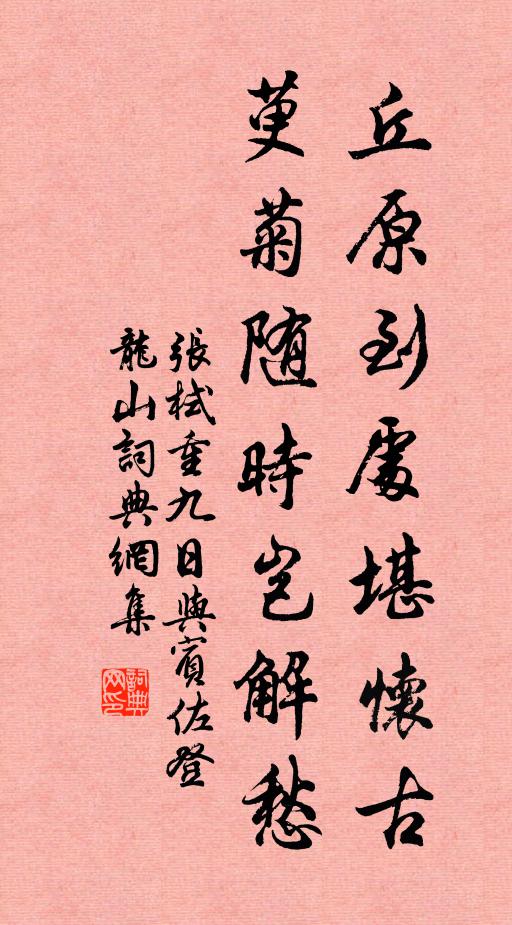 丘原到處堪懷古
萸菊随時豈解愁
張栻重九日與賓佐登
龍山詞典網集
詞典网印